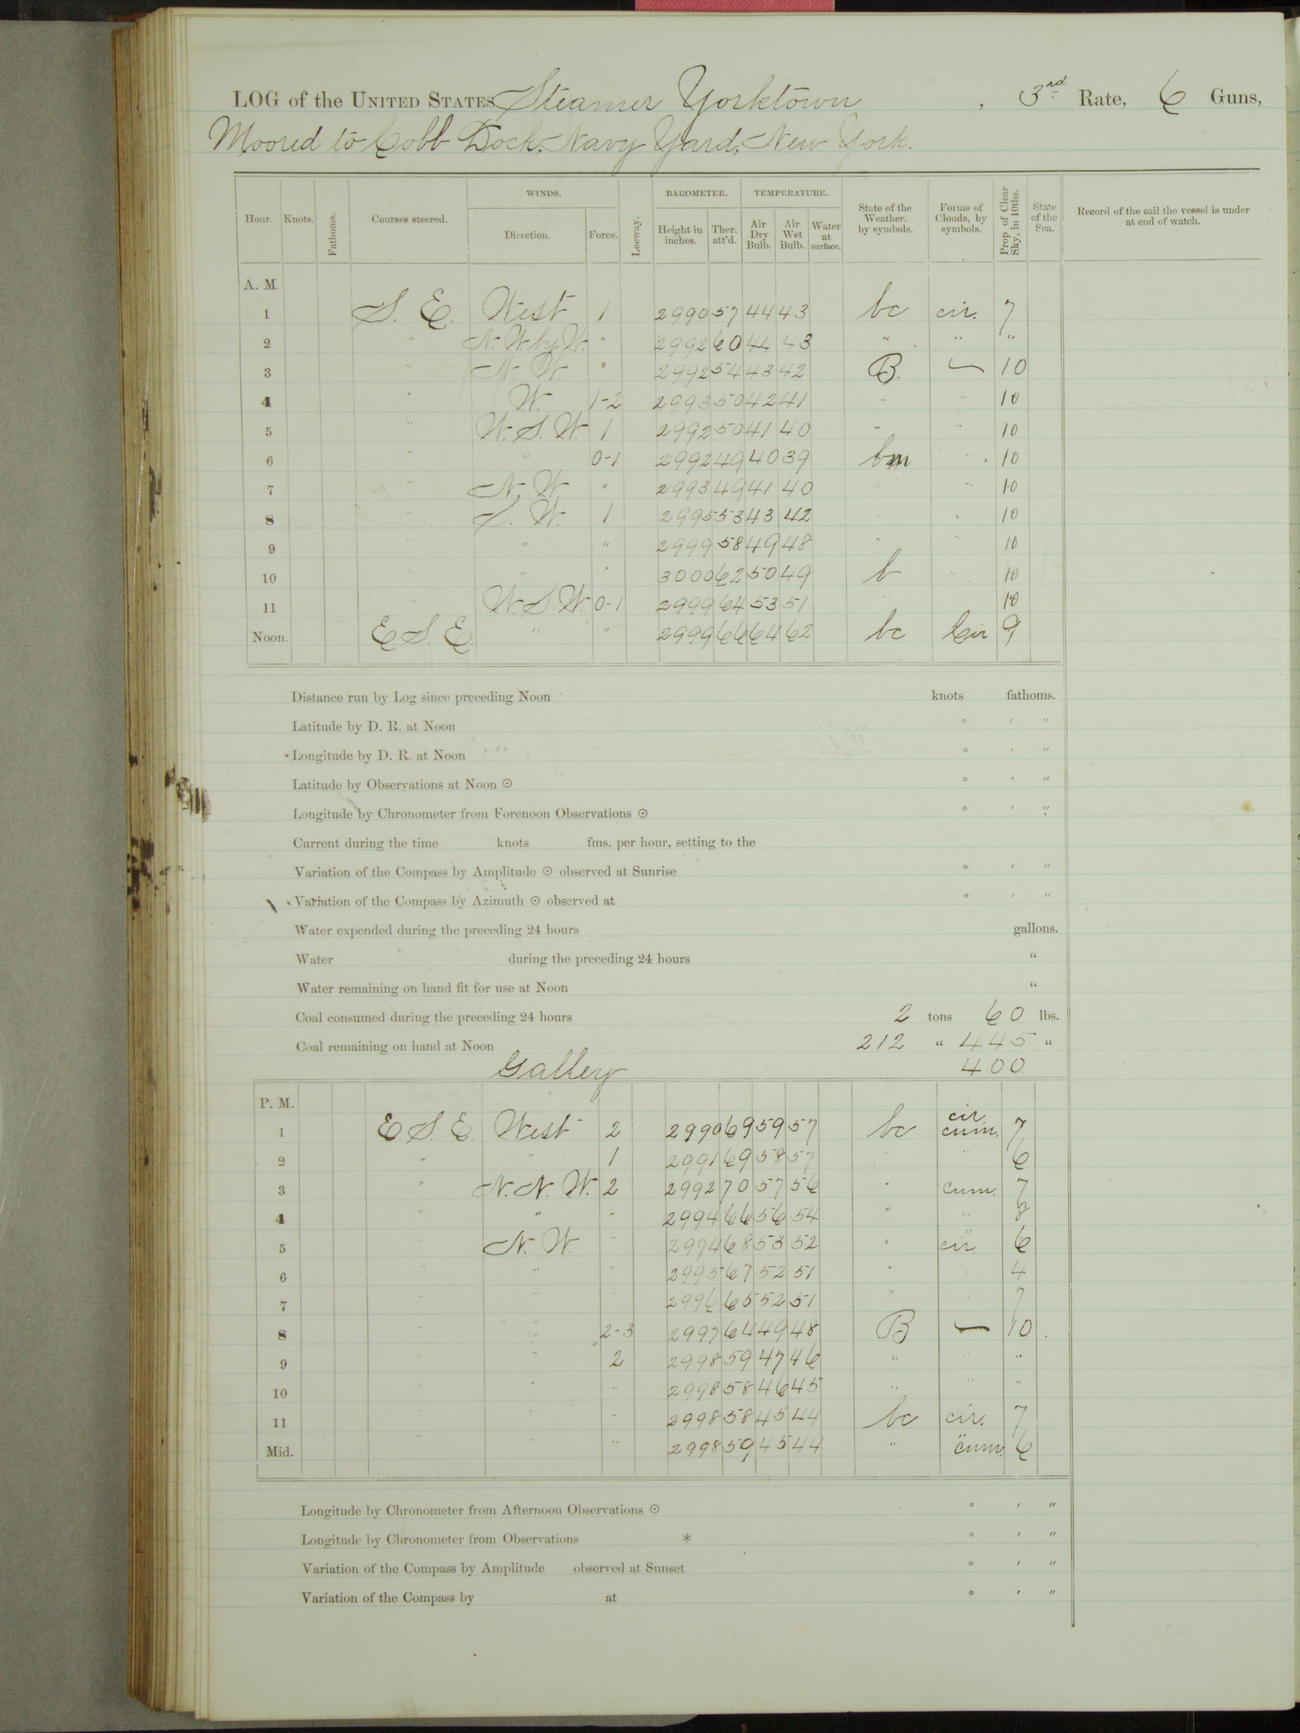 LOG of the UNITED STATES Steamer Yorktown, 3rd Rate, 6 Guns,
Moored to Cobb Dock, Navy Yard, New York.
Hour. Knots. Fathoms. Courses steered. WINDS. Direction. Force. Leeway. BAROMETER. Height in inches. Ther. att'd. TEMPERATURE. Air Dry Bulb. Air Wet Bulb. Water at surface. State of the Weather, by symbols. Forms of Clouds, by symbols. Prop. of Clear Sky, in 10ths. State of the Sea. Record of the sail the vessel is under at end of watch.
A. M.
1 S. E. West 1 2990 57 44 43 bc cir. 7
2 " N. W. by W. " 2992 60 44 43 " " "
3 " N. W. " 2992 54 43 42 B. — 10
4 " W. 1-2 2993 50 42 41 " " 10
5 " W. S. W. 1 2992 50 41 40 " " 10
6 " " 0-1 2992 49 40 39 bm " 10
7 " N. W. " 2993 49 41 40 " " 10
8 " S. W. 1 2995 53 43 42 " " 10
9 " " " 2999 58 49 48 " " 10
10 " " " 3000 62 50 49 b " 10
11 W. S. W. 0-1 2999 64 53 51 " 10
Noon. E S. E. " " 2999 66 64 62 bc Cir 9
Distance run by Log since preceding Noon knots fathoms.
Latitude by D. R. at Noon ° ' "
Longitude by D. R. at Noon ° ' "
Latitude by Observations at Noon ☉ ° ' "
Longitude by Chronometer from Forenoon Observations ☉ ° ' "
Current during the time knots fms. per hour, setting to the
Variation of the Compass by Amplitude ☉ observed at Sunrise ° ' "
Variation of the Compass by Azimuth ☉ observed at ° ' "
Water expended during the preceding 24 hours gallons.
Water during the preceding 24 hours "
Water remaining on hand fit for use at Noon "
Coal consumed during the preceding 24 hours 2 tons 60 lbs.
Coal remaining on hand at Noon 212 " 445 "
Galley 400
P. M.
1 E S. E. West 2 2990 69 59 57 bc cir. cum. 7
2 " " 1 2991 69 58 57 " " 6
3 " N. N. W. 2 2992 70 57 56 " cum. 7
4 " " " 2994 66 56 54 " " 8
5 " N. W. " 2994 68 53 52 " cir. 6
6 " " " 2995 67 52 51 " " 4
7 " " " 2996 65 52 51 " " 7
8 " " 2-3 2997 64 49 48 B — 10
9 " " 2 2998 59 47 46 " " "
10 " " " 2998 58 46 45 " " "
11 " " " 2998 58 45 44 bc cir. 7
Mid. " " " 2998 59 45 44 " " cum. 6
Longitude by Chronometer from Afternoon Observations ☉ ° ' "
Longitude by Chronometer from Observations * ° ' "
Variation of the Compass by Amplitude observed at Sunset ° ' "
Variation of the Compass by at ° ' "